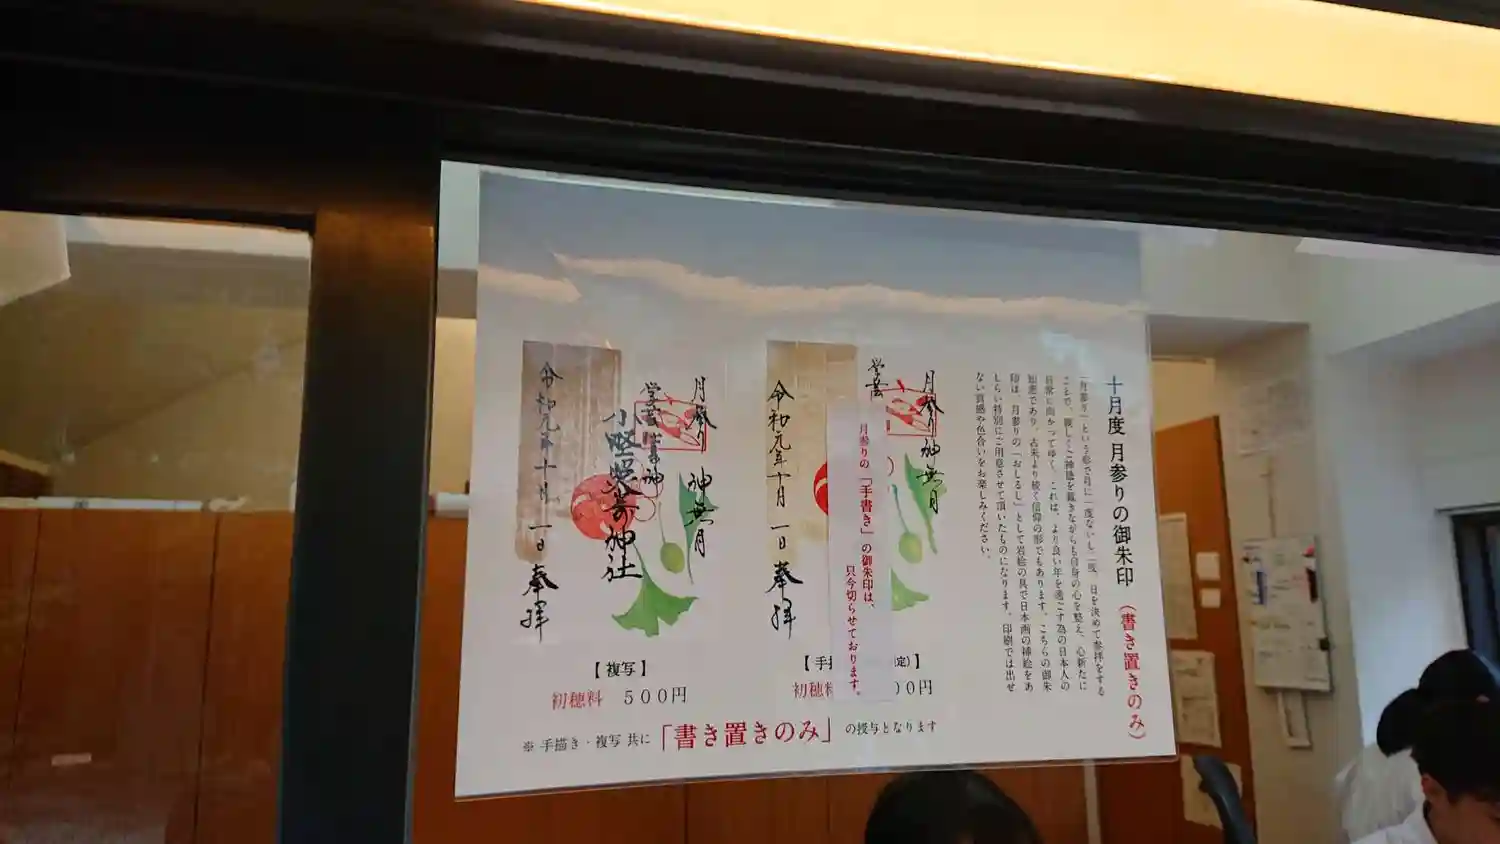 十月度 月参りの御朱印 (書き置きのみ)
「月参り」という形で月に一度ないし二度、日を決めて参拝をする
ことで、親しくご神徳を戴きながらも自身の心を整え、心新たに
日常に向かってゆく。これは、より良い年を過ごす為の日本人の
知恵であり、古来より続く信仰の形でもあります。こちらの御朱
印は、月参りの「おしるし」として岩絵の具で日本画の挿絵をあ
しらい特別にご用意させて頂いたものになります。印刷では出せ
ない質感や色合いをお楽しみください。
月参り 神無月
学芸
令和元年十月 一日 奉拝
月参りの「手書き」の御朱印は、
只今切らせております。
【手 定)】
初穂料 00円
月参り 神無月
学芸
小野照崎神社
令和元年十月 一日 奉拝
【複写】
初穂料 500円
※ 手描き・複写 共に「書き置きのみ」の授与となります